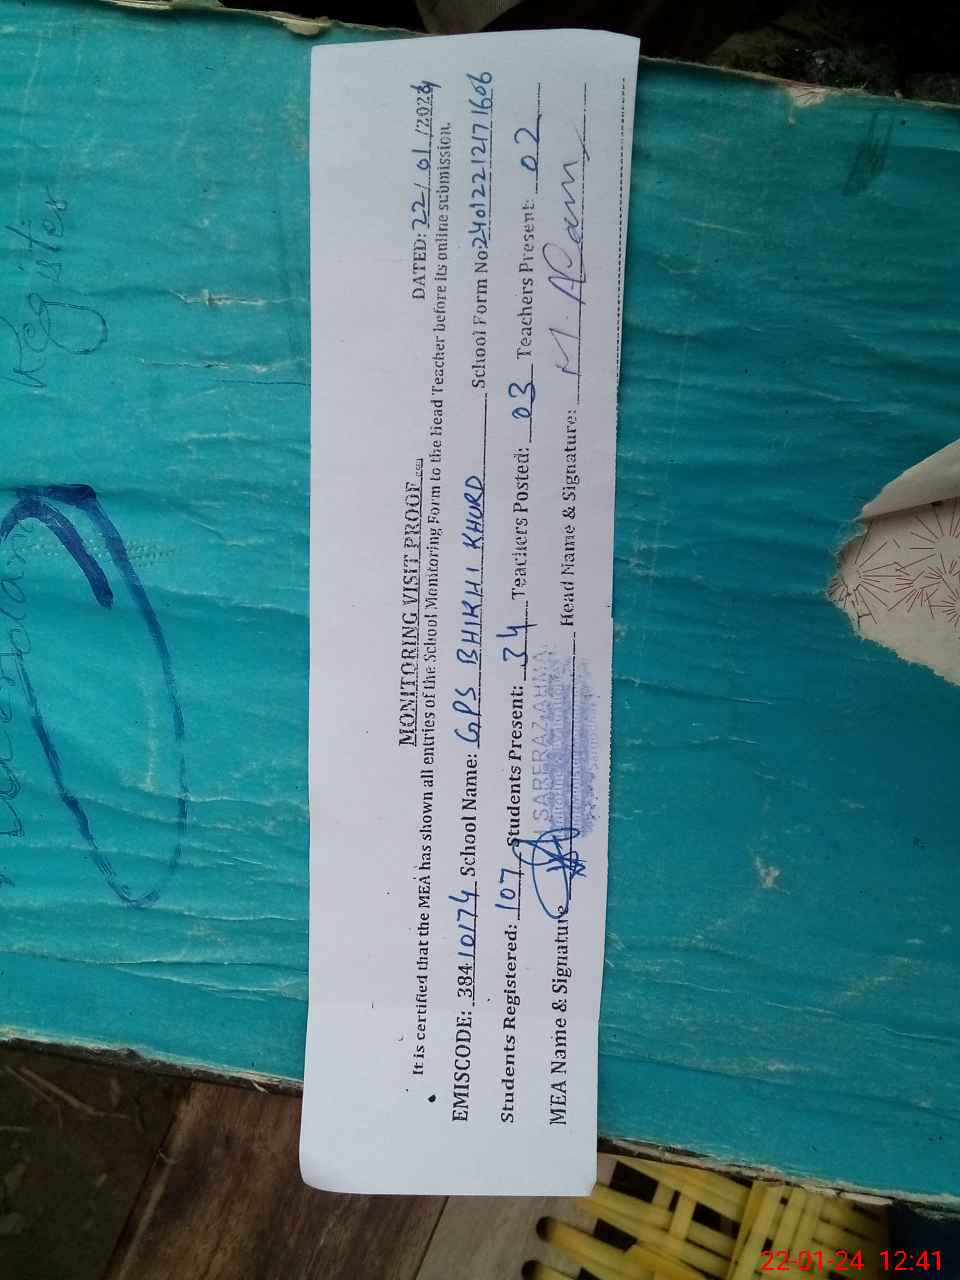 MONITORING VISIT PROOF
DATED: 22/01/2024
It is certified that the MEA has shown all entries of the School Monitoring Form to the Head Teacher before its online submission.
EMISCODE: 38410174 School Name: GPS BHIKHI KHURD School Form No: 2401221217 1606
Students Registered: 107 Students Present: 34 Teachers Posted: 03 Teachers Present: 02
MEA Name & Signature SARFRAZ AHMA Head Name & Signature: M. Aslam
Register
22-01-24 12:41